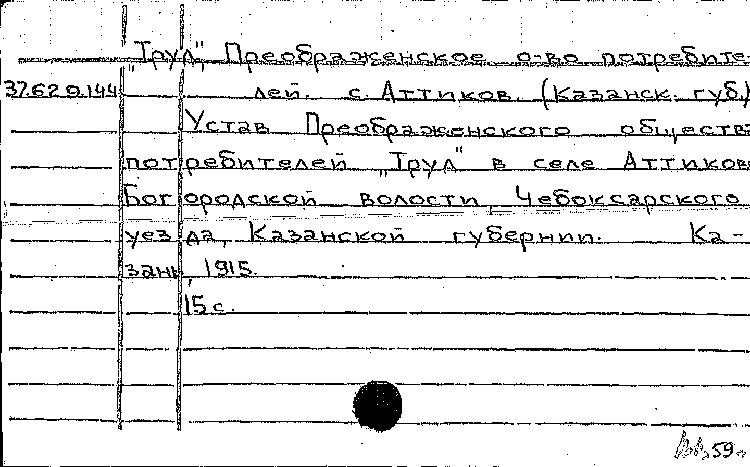 "Труд", Преображенское о-во потребите-
37.62 0.144 лей. с. Аттиков. (Казанск. губ.)
Устав Преображенского обществ
потребителей „Труд" в селе Аттиков
Богородской волости, Чебоксарского
уезда, Казанской губернии. Ка-
зань, 1915.
15 с.
59